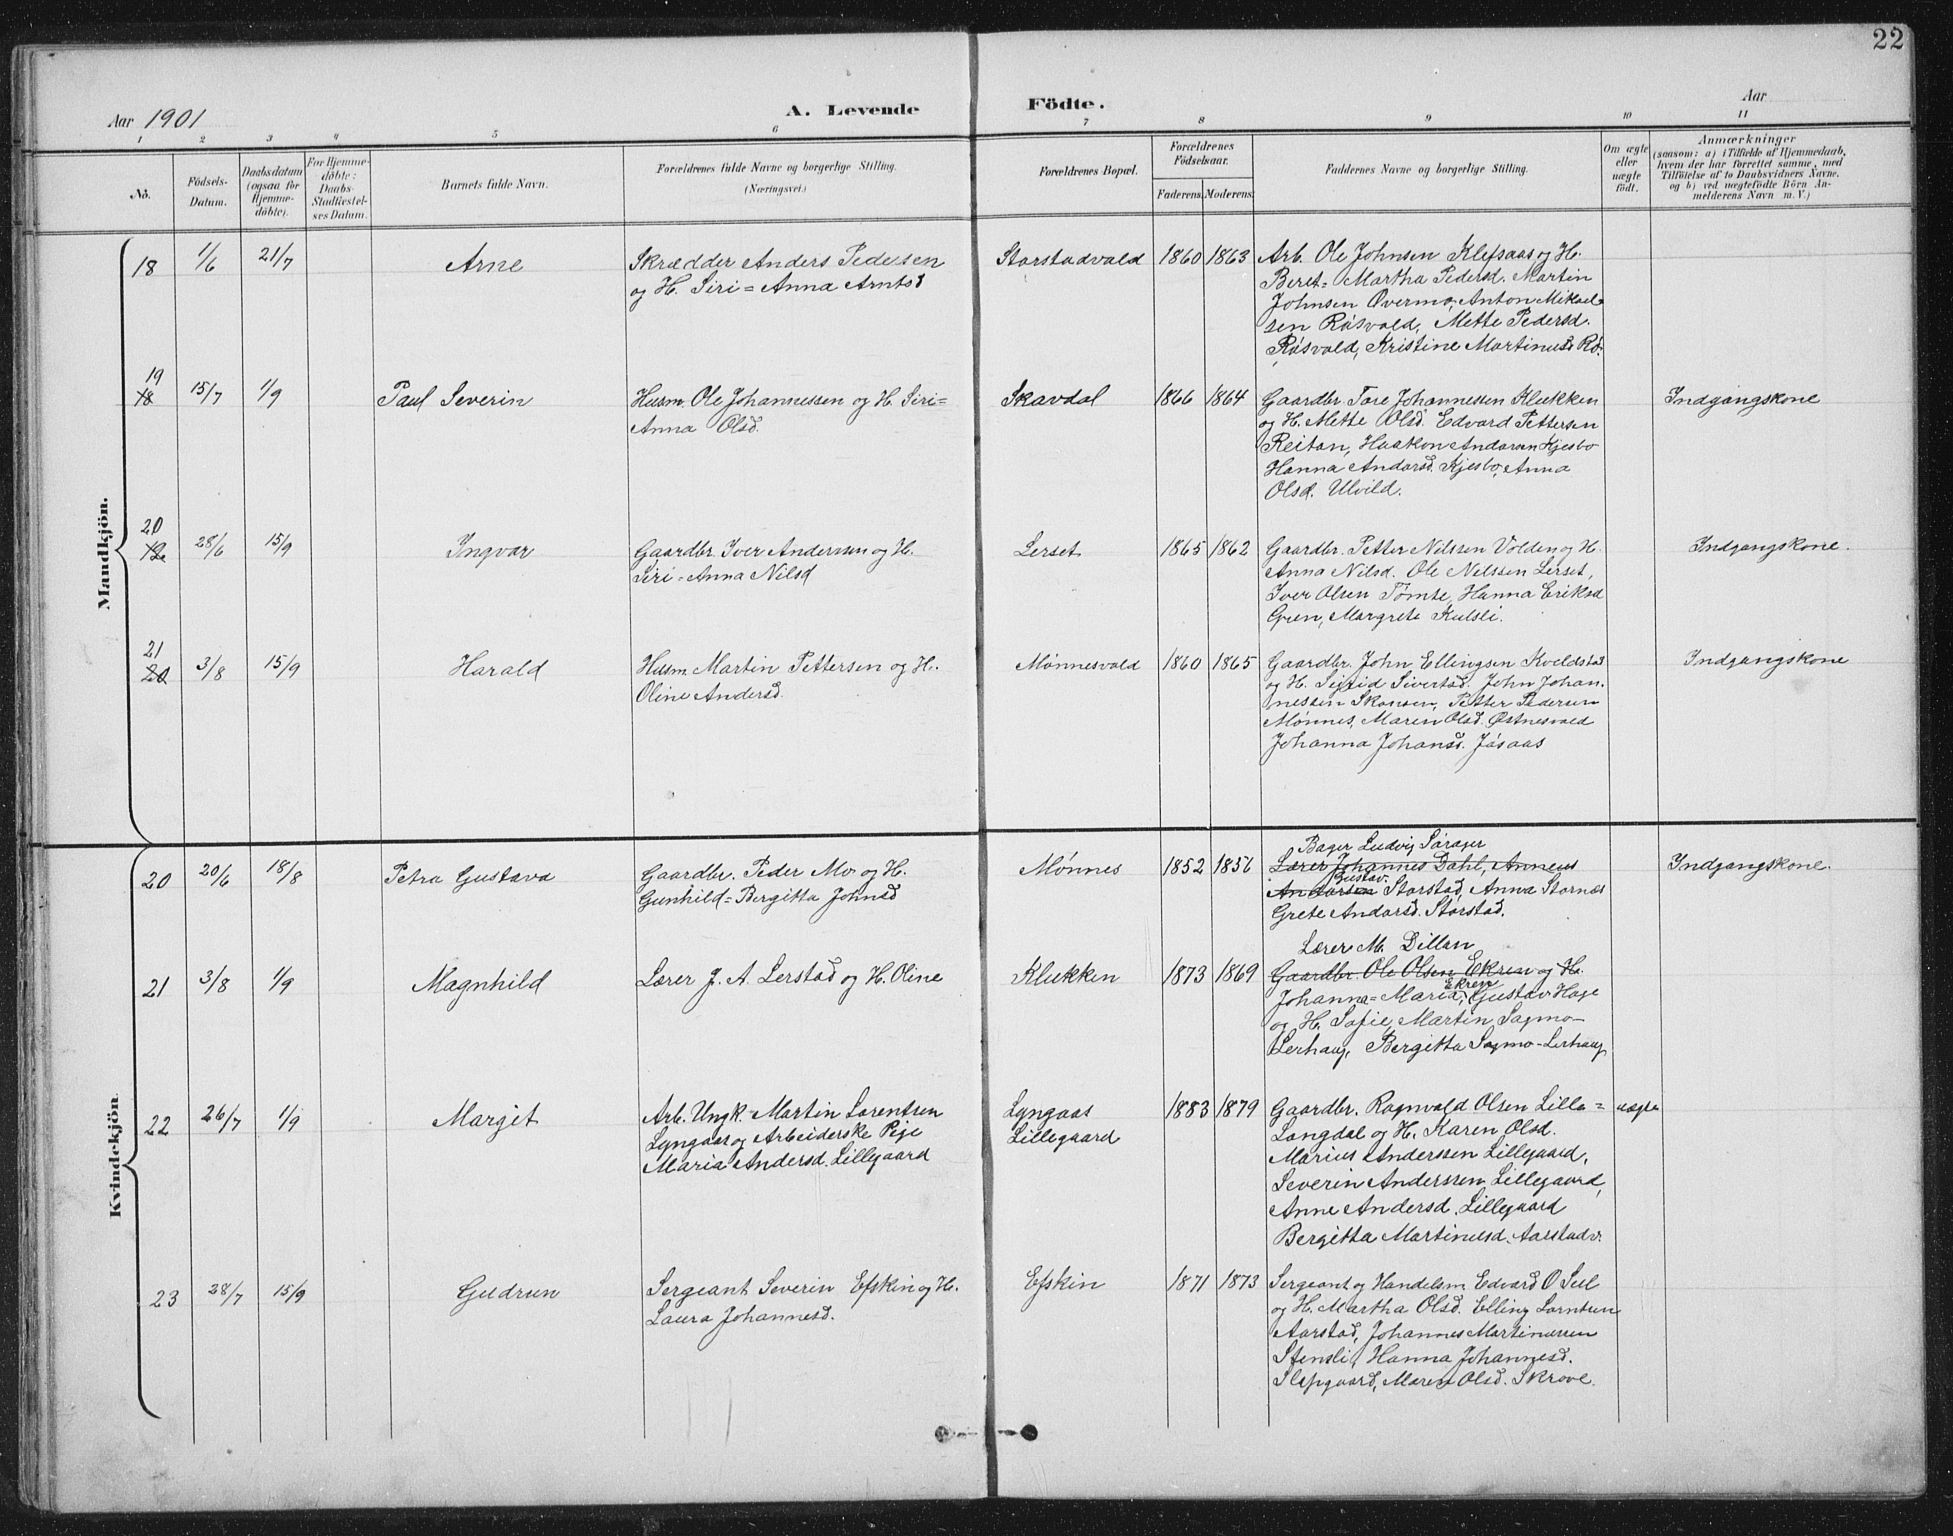 22
Aar 1901
A. Levende Födte.
Aar
1 2 3 4 5 6 7 8 9 10 11
No.
Födsels-Datum.
Daabsdatum (ogsaa for Hjemmedöbte).
For Hjemmedöbte: Daabs-Stadfæstelses Datum.
Barnets fulde Navn.
Forældrenes fulde Navne og borgerlige Stilling.
(Næringsvei.)
Forældrenes Bopæl.
Forældrenes Födselsaar.
Faderens. Moderens.
Faddernes Navne og borgerlige Stilling.
Om ægte eller uægte födt.
Anmærkninger
(saasom: a) i Tilfælde af Hjemmedaab,
hvem der har forrettet samme, med
Tilföielse af to Daabsvidners Navne.
og b) ved uægtefödte Börn An-
melderens Navn m. V.)
Mandkjön.
18 1/6 21/7 Arne
Skrædder Anders Pedersen
og H. Siri=Anna Arntsd
Storstadvald 1860 1863
Arb. Ole Johnsen Klefsaas og H.
Beret=Martha Pedersd. Martin
Johnsen Overmo, Anton Mikael=
sen Røsvald, Mette Pedersd.
Røsvald, Kristine Martinusd Rø.
19
18 15/7 1/9 Paul Severin
Husm. Ole Johannessen og H. Siri=
Anna Olsd.
Skavdal 1866 1864
Gaardbr. Tore Johannessen Klukken
og H. Mette Olsd. Edvard Pettersen
Reitan, Haakon Andersen Kjesbo
Hanna Andersd. Kjesbo, Anna
Olsd. Ulvild.
Indgangskone
20
28/6 15/9 Ingvar
Gaardbr. Iver Andersen og H.
Siri=Anna Nilsd
Lerset 1865 1862
Gaardbr. Petter Nilssen Volden og H.
Anna Nilsd. Ole Nilssen Lerset,
Iver Olsen Tømte, Hanna Eriksd
Gren, Margrete Kulsli.
Indgangskone.
21
20 3/8 15/9 Harald
Husm. Martin Pettersen og H.
Oline Andersd.
Mønnesvald 1860 1865
Gaardbr. John Ellingsen Kveldstad
og H. Sigrid Sivertsd. John Johan.
nessen Skansen, Petter Pedersen
Mønnes, Maren Olsd. Østnesvald
Johanna Johansd. Jøsaas
Indgangskone
Kvindekjön.
20 20/6 18/8 Petra Gustava
Gaardbr. Peder Mo og H.
Gunhild=Bergitta Johnsd
Mønnes 1852 1856
Bager Ludvig Sørager
Lærer Johannes Dahl, Anneus
Gustav
Andersen Storstad, Anna Stornæs
Grete Andersd. Storstad.
Indgangskone.
21 3/8 1/9 Magnhild
Lærer J. A. Lerstad og H. Oline
Klukken 1873 1869
Lærer M. Dillan
Gaardbr. Ole Olsen Ekren og H.
Ekren
Johanna=Maria, Gustav Hage
og H. Sofie, Martin Sagmo-
Lerhaug, Bergitta Sagmo-Lerhaug
22 26/7 1/9 Margit
Arb. Ungk. Martin Lorentsen
Lyngaas og Arbeiderske Pige
Maria Andersd. Lillegaard
Lyngaas
Lillegaard
1883 1879
Gaardbr. Ragnvald Olsen Lille=
Langdal og H. Karen Olsd.
Marius Anderssen Lillegaard,
Severin Anderssen Lillegaard,
Anne Andersd. Lillegaard
Bergitta Martinusd. Aarstadv.
uægte
23 28/7 15/9 Gudrun
Sergeant Severin Efskin og H.
Laura Johannesd.
Efskin 1871 1873
Sergeant og Handelsm. Edvard O Sul
og H. Martha Olsd. Elling Lorntsen
Aarstad, Johannes Martinussen
Stensli, Hanna Johannesd.
Slapgaard, Maren Olsd. Skrove.